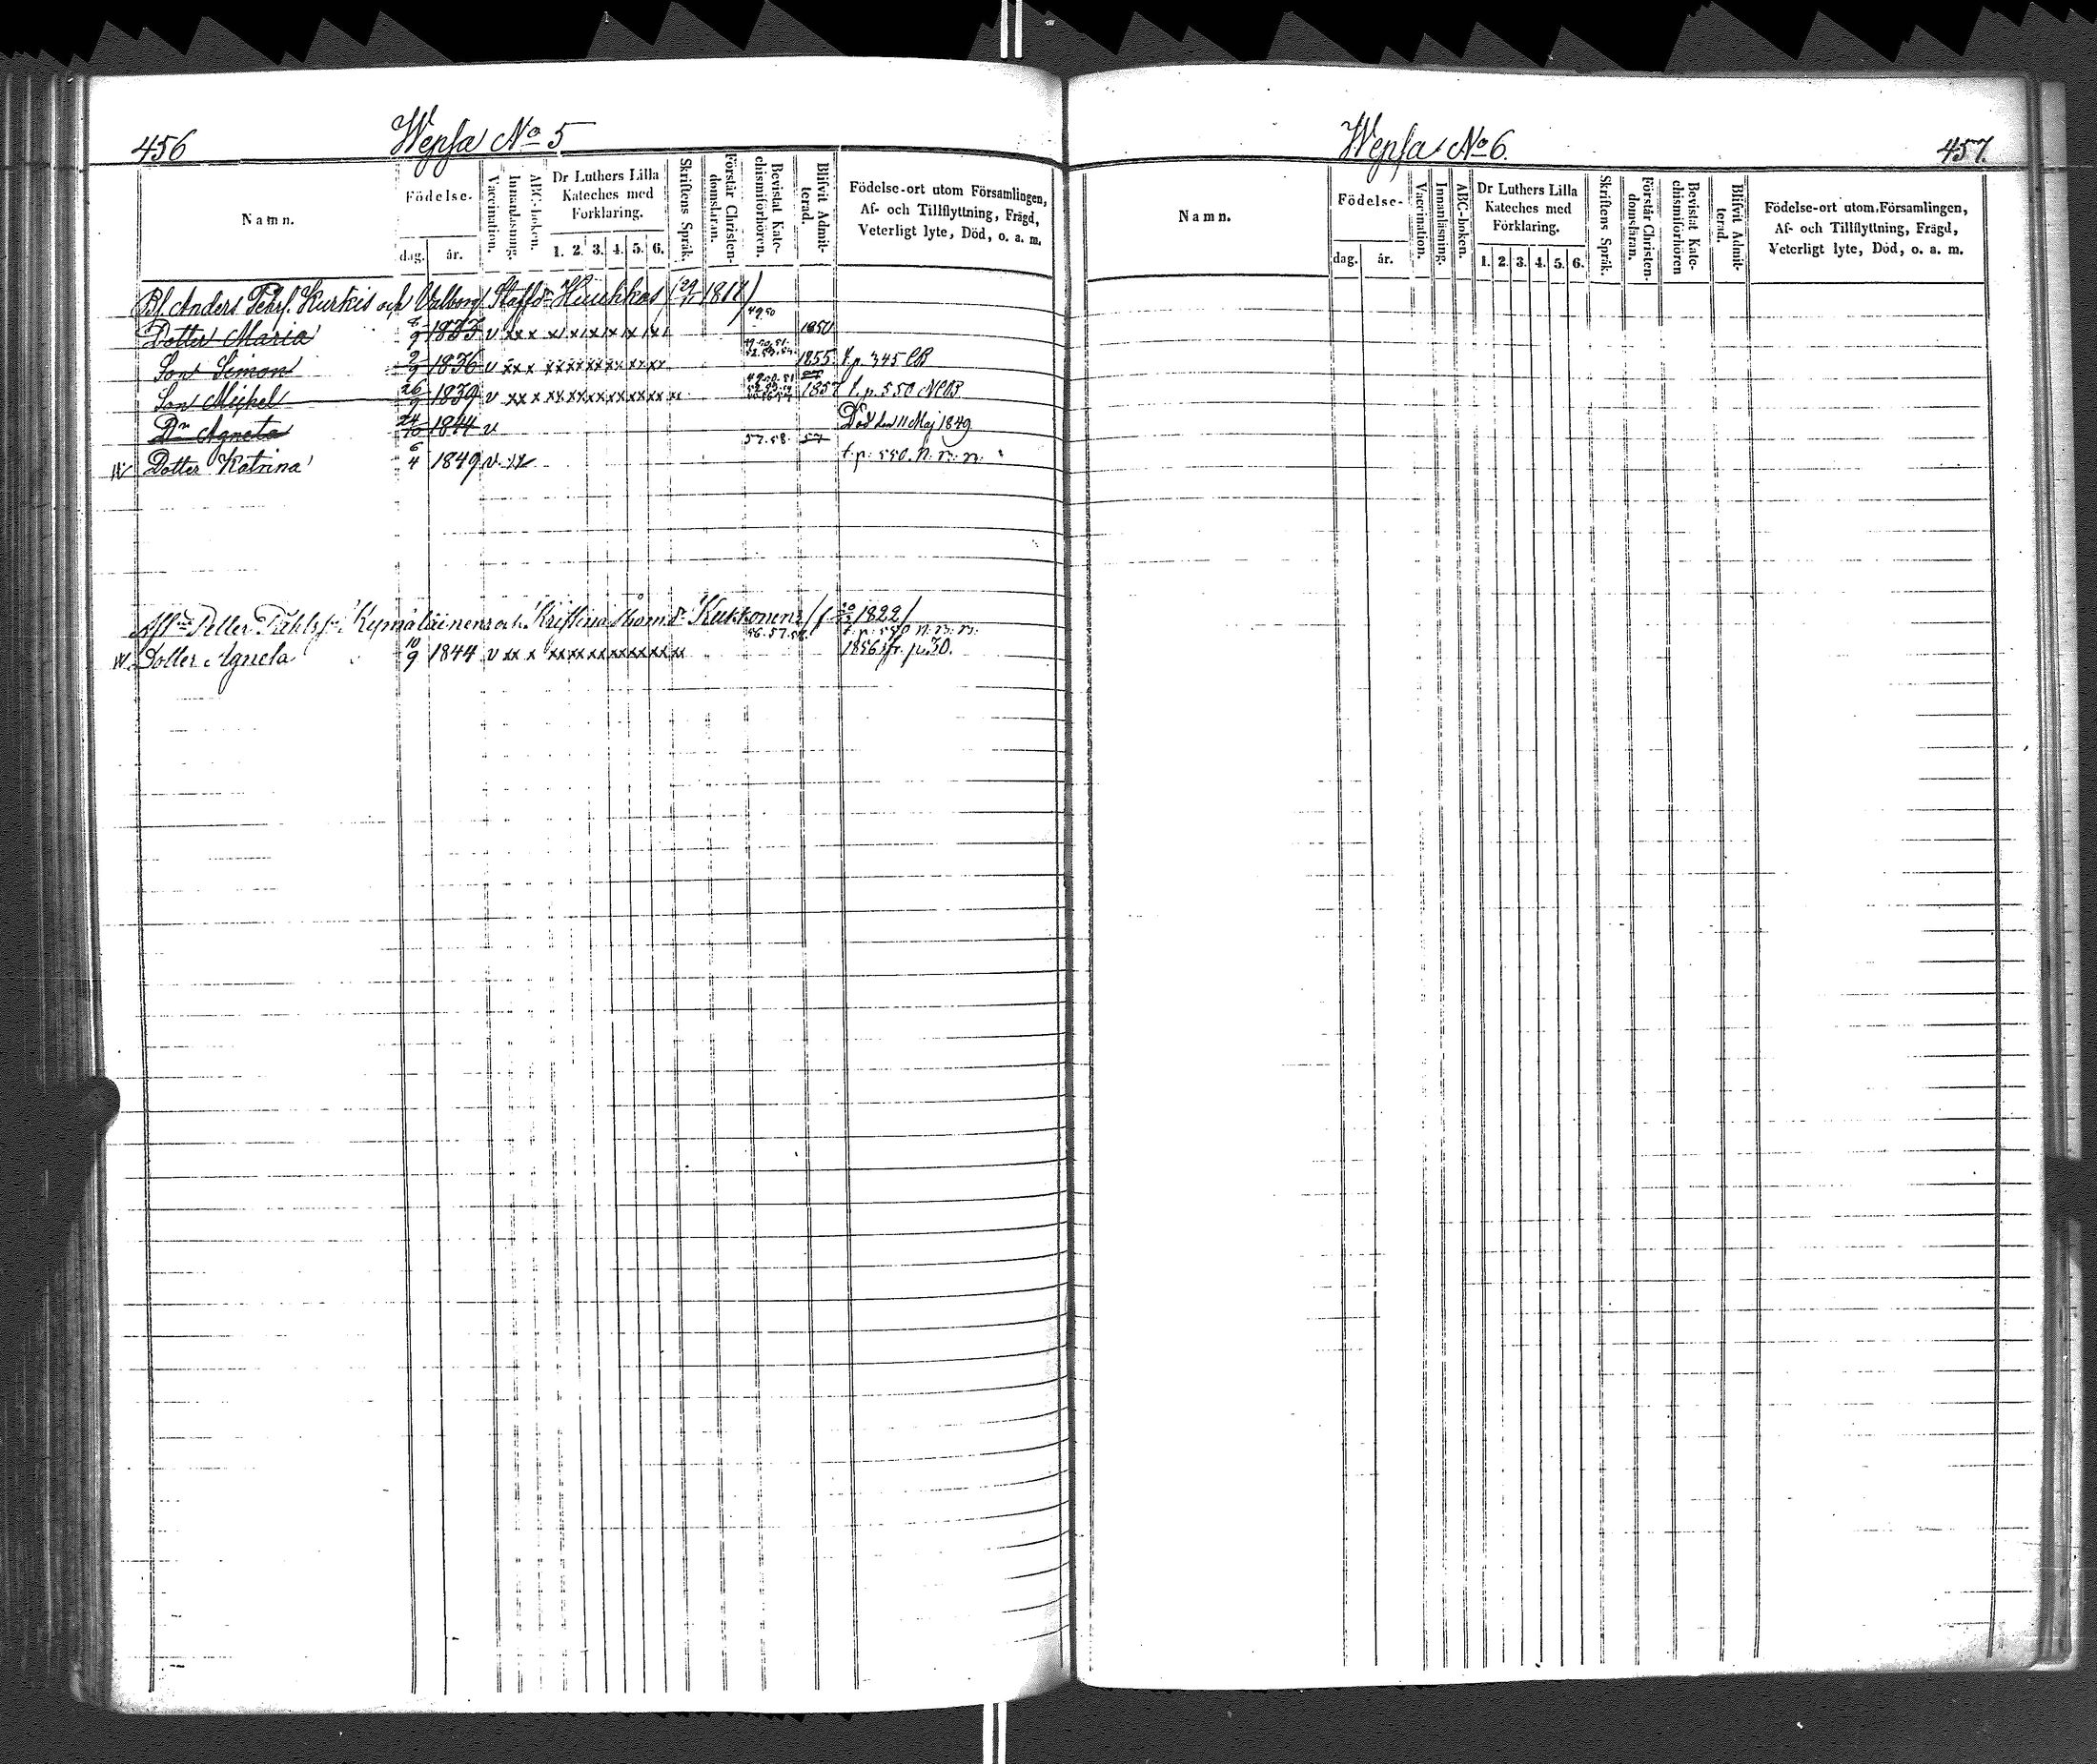 456
Wepsa No 5
Namn.
Födelse-
dag.
år.
Vaccination.
Innanläsning.
ABC-boken.
Dr Luthers Lilla
Kateches med
Förklaring.
1. 2. 3. 4. 5. 6.
Skriftens Språk.
Förstår Christen-
domsläran.
Bevistat Kate-
chismiförhören.
Blifvit Admit-
terad.
Födelse-ort utom Församlingen,
Af- och Tillflyttning, Frägd,
Veterligt lyte, Död, o. a. m.
Bl. Anders Pehrs. Kurkis och Valborg Staffsdr Huuhkas
Dotter Maria 6/9 1833 v xx x 49 50 1850
Son Simon 2/9 1836 v xx x 1855 t. p. 345 CB
Son Michel 26/9 1839 v xx x 1857 t. p. 550
Dr Agneta 24/10 1844 v Död den 11 Maj 1849
Dotter Katrina 6/4 1849 v 57. 58. t. p. 550. n. m. m.
Petter Påhls. Kymäläinens och Kristina Thom.dr Kukkonens 1822)
Dotter Agneta 10/9 1844 v xx x 56. 57. 58. t. p. 550 n. m. m.
1856 fr. p. 30.
Wepsa No 6.
457.
Namn.
Födelse-
dag.
år.
Vaccination.
Innanläsning.
ABC-boken.
Dr Luthers Lilla
Kateches med
Förklaring.
1. 2. 3. 4. 5. 6.
Skriftens Språk.
Förstår Christen-
domsläran.
Bevistat Kate-
chismiförhören
Blifvit Admit-
terad.
Födelse-ort utom Församlingen,
Af- och Tillflyttning, Frägd,
Veterligt lyte, Död, o. a. m.